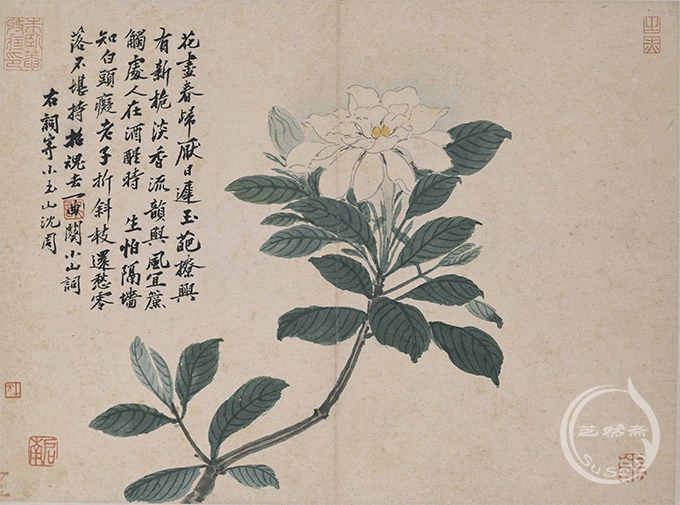 花盡春歸厭日遲玉葩撩興
有新梔淡香流韻與風宜簾
觸處人在酒醒時 生怕隔墻
知白頭癡老子折斜枝還愁零
落不堪持招魂去一曲闋小山詞
右詞寄小玉山沈周
芝然斋